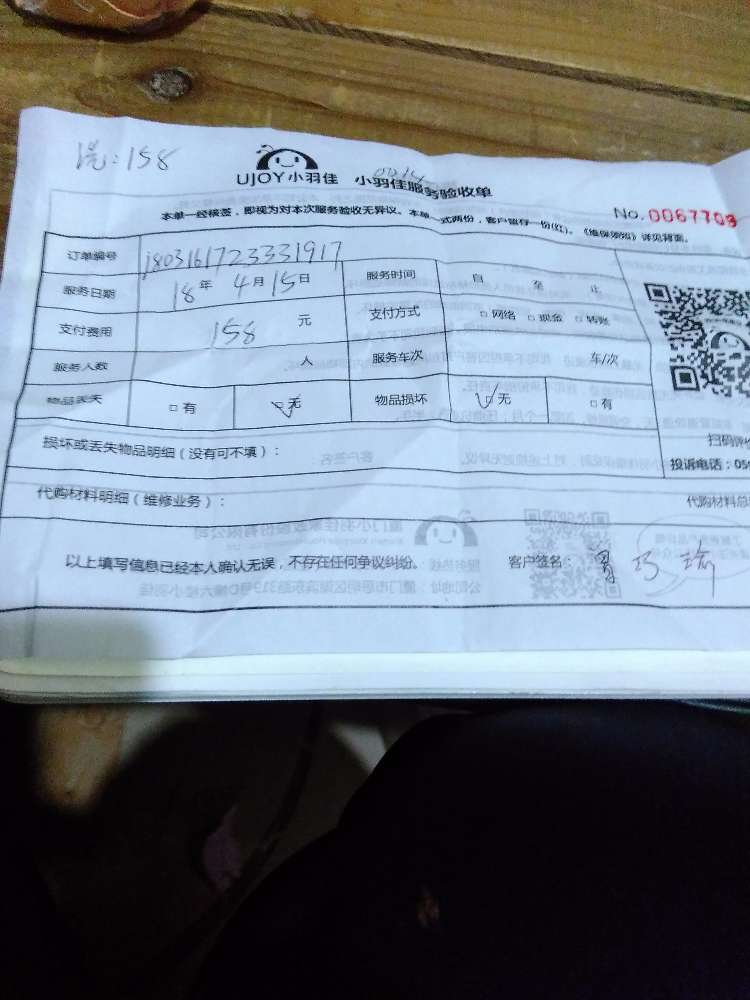 洗:158
UJOY小羽佳 小羽佳服务验收单
No.0067703
本单一经核签，即视为对本次服务验收无异议。本单一式两份，客户留存一份(红)。《维保须知》详见背面。
订单编号 J803161723331917
服务日期 18年4月15日 服务时间 自 至 止
支付费用 158元 支付方式 □网络 □现金 □转账
服务人数 人 服务车次 车/次
物品丢失 □有 □无 物品损坏 □无 □有
扫码评价
损坏或丢失物品明细（没有可不填）：
投诉电话：059
代购材料明细（维修业务）：
代购材料总
以上填写信息已经本人确认无误，不存在任何争议纠纷。 客户签名：